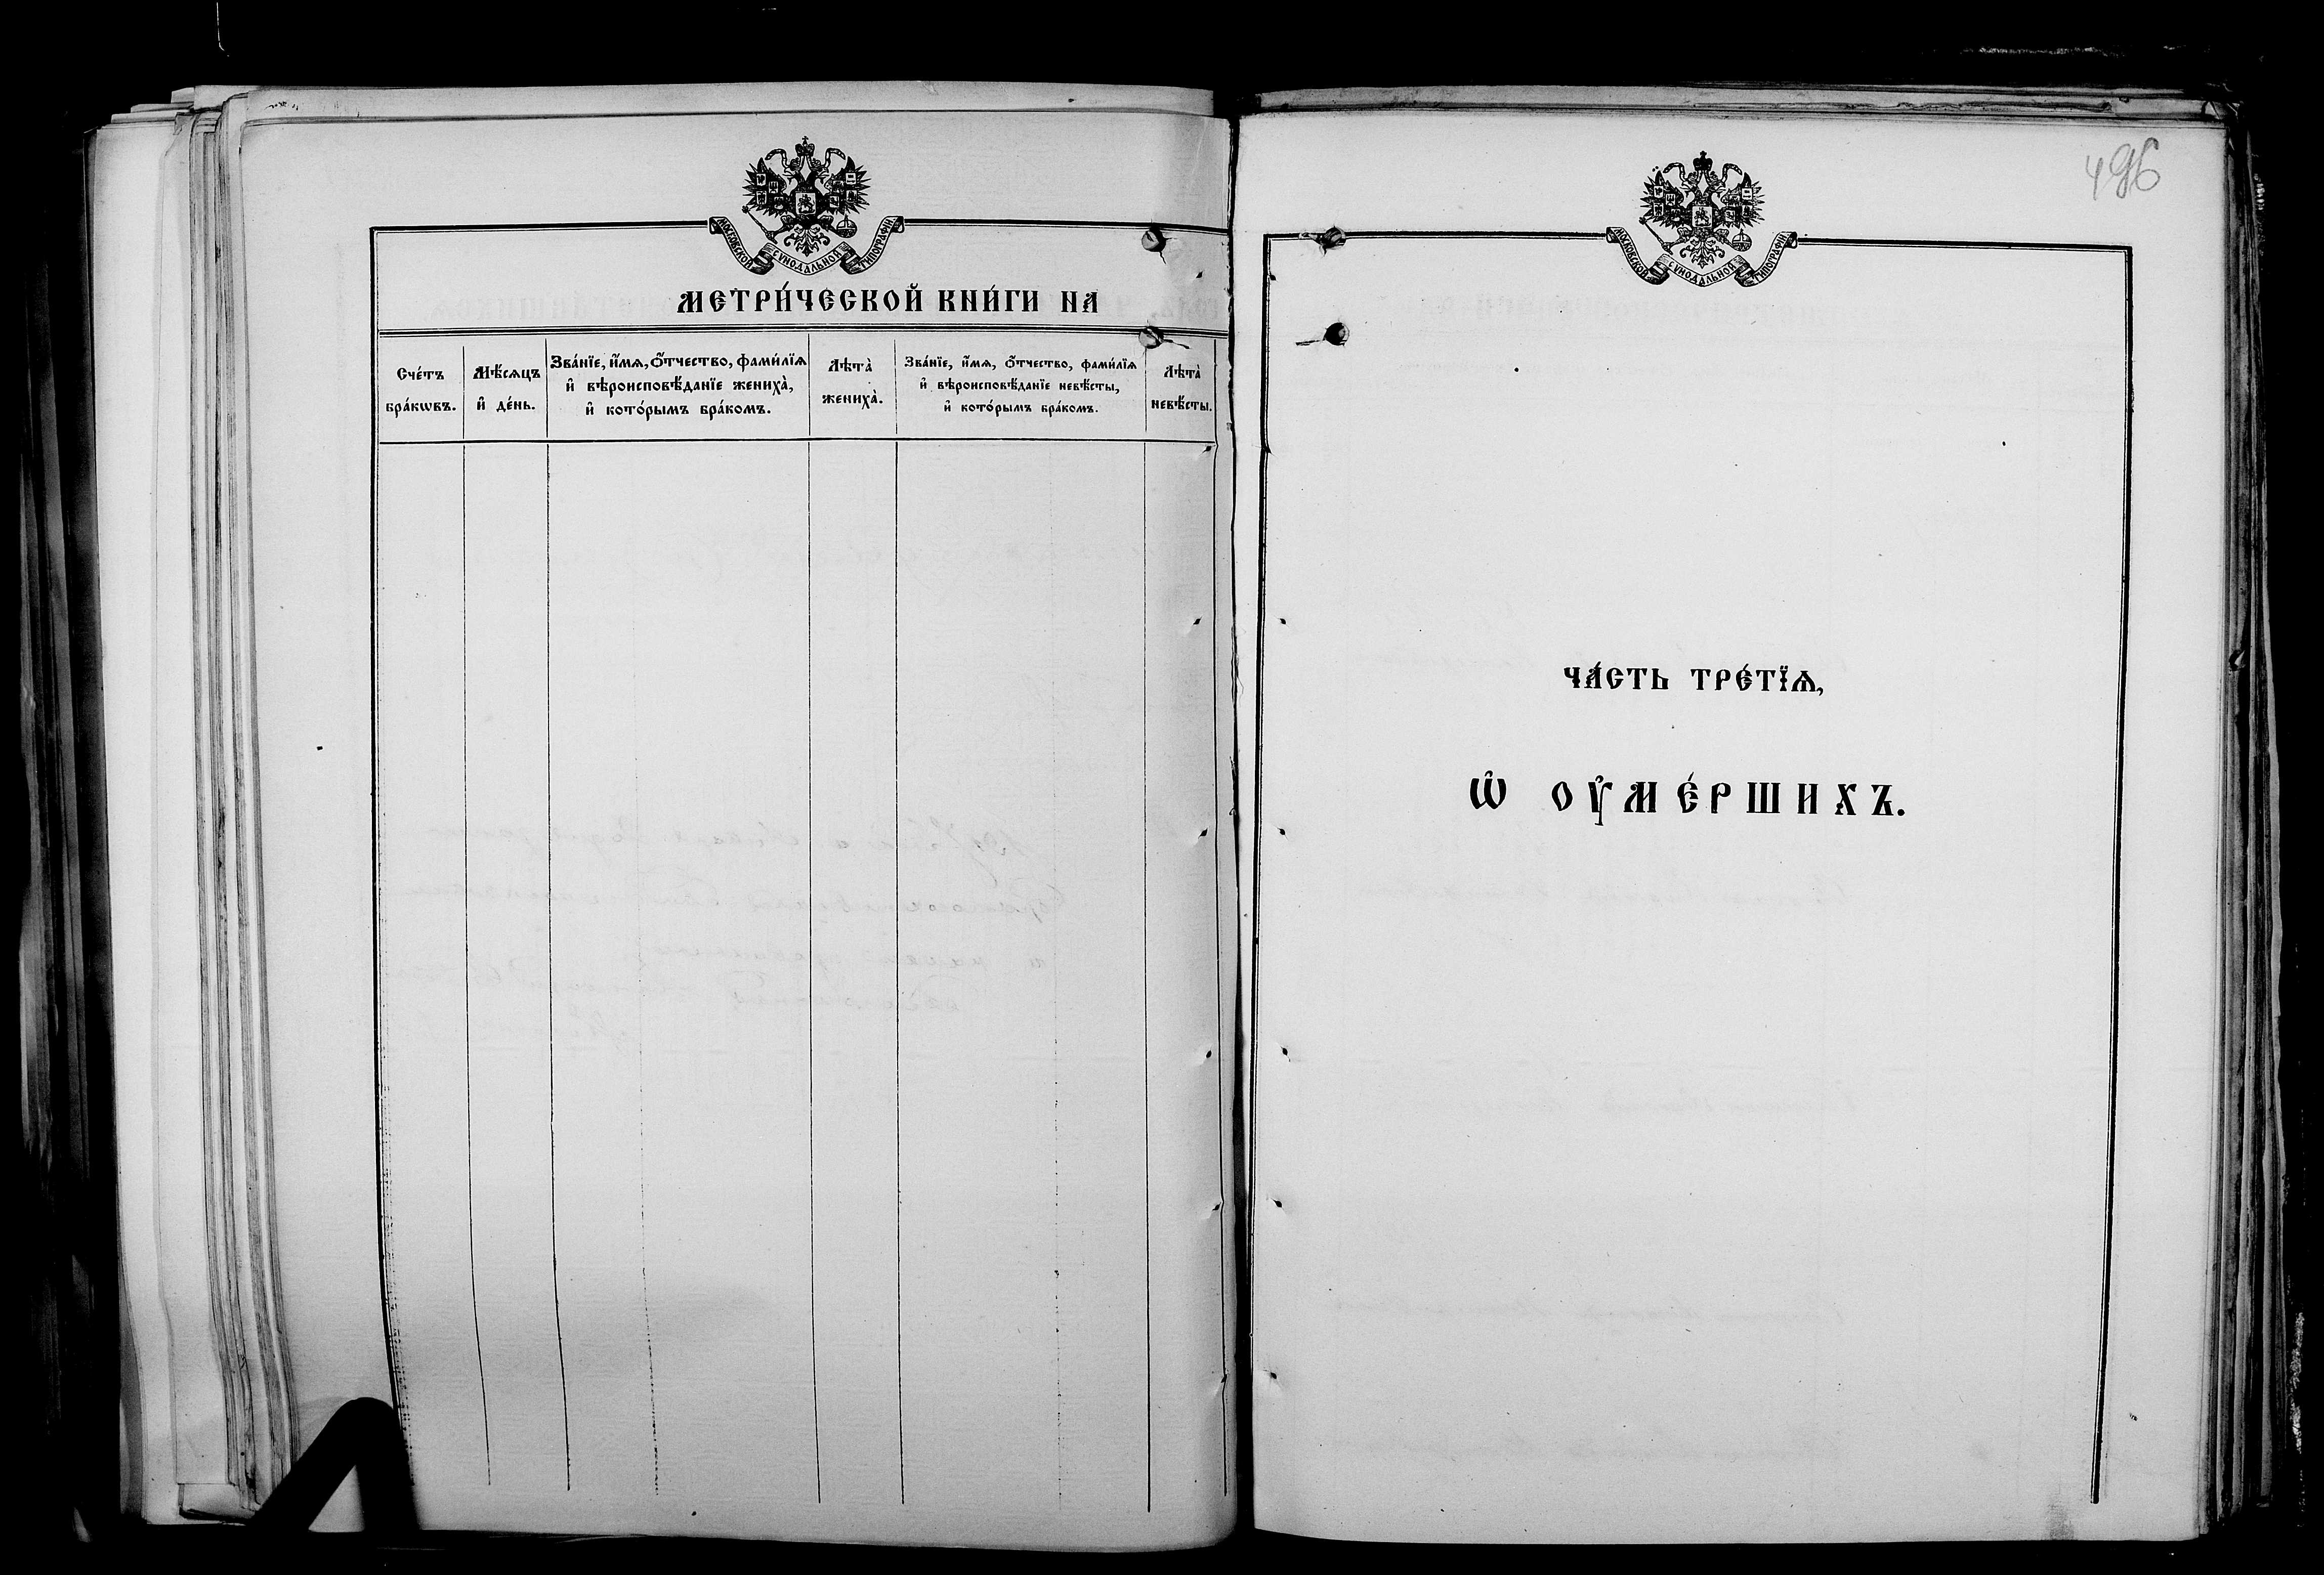 МОСКОВСКОЙ СѴНОДАЛЬНОЙ ТИПОГРАФІИ
МЕТРИ́ЧЕСКОЙ КНИ́ГИ НА
Сче́тъ
бра́кωвъ.
Мѣ́сяцъ
и҆ де́нь.
Зва́нїе, и҆́мѧ, ѻ҆́тчество, фами́лїѧ
и҆ вѣроисповѣ́данїе жениха̀,
и҆ кото́рымъ бра́комъ.
Лѣта̀
жениха̀.
Зва́нїе, и҆́мѧ, ѻ҆́тчество, фами́лїѧ
и҆ вѣроисповѣ́данїе невѣ́сты,
и҆ кото́рымъ бра́комъ.
Лѣта̀
невѣ́сты.
496
МОСКОВСКОЙ СѴНОДАЛЬНОЙ ТИПОГРАФІИ
ЧА́СТЬ ТРЕ́ТЇѦ,
Ѡ҆ ОУ҆МЕ́РШИХЪ.